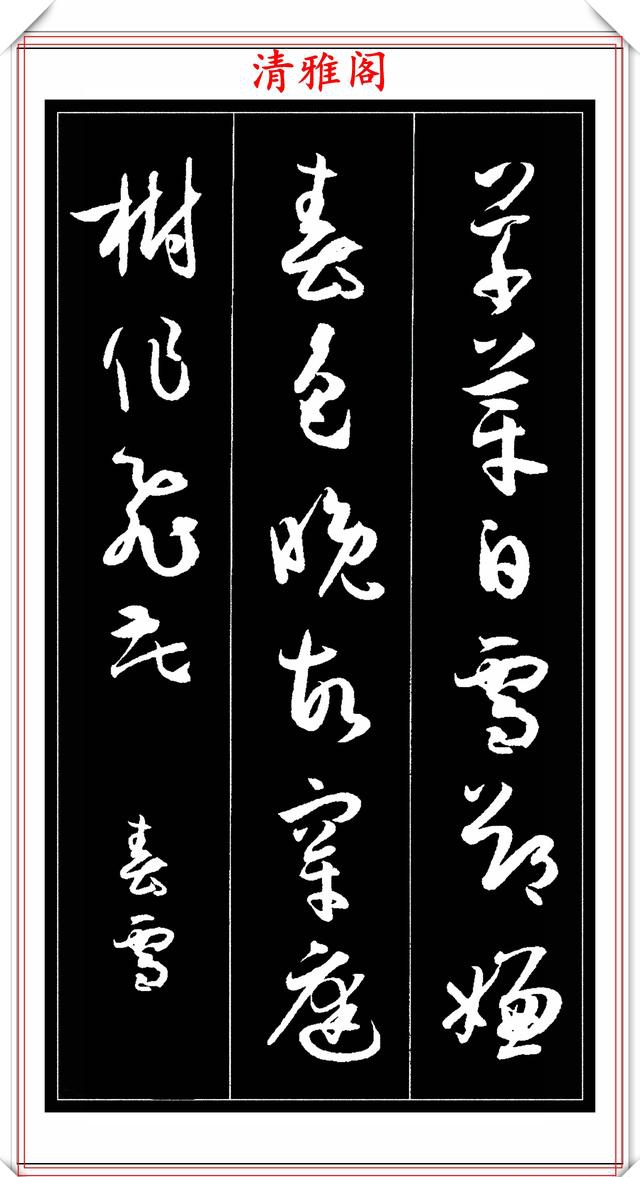 清雅阁
草芽白雪却嫌
春色晚故穿庭
樹作飛花
春雪